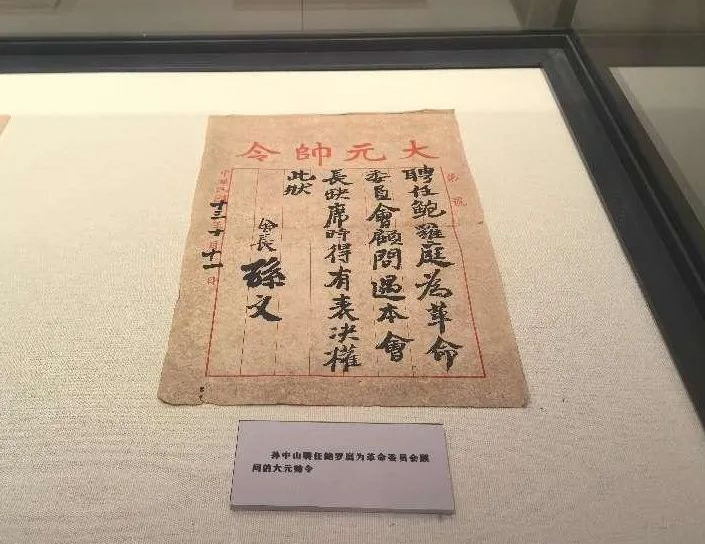 大元帥令
第 號
聘任鮑羅庭為革命
委員會顧問遇本會
長缺席時得有表決權
此狀
會長
孫文
十三年十月十一日
孙中山聘任鲍罗庭为革命委员会顾
问的大元帅令